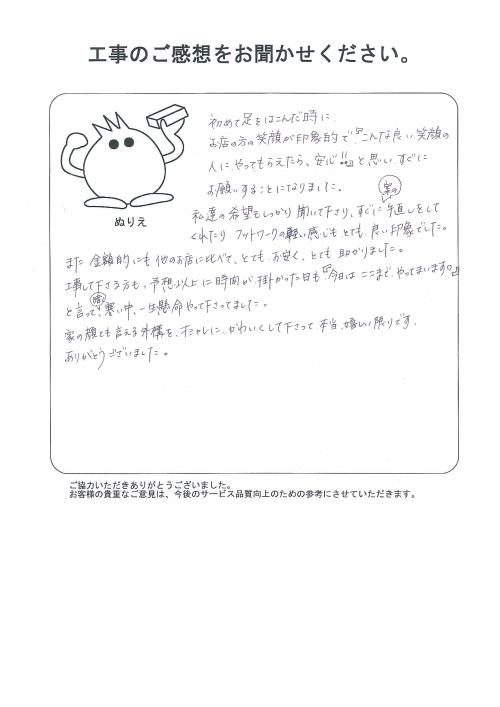 工事のご感想をお聞かせください。
初めて足をはこんだ時に、
お店の方の笑顔が印象的で『こんな良い笑顔の
人にやってもらえたら、安心!!』と思い、すぐに
お願いすることになりました。
ぬりえ
私達の希望もしっかり聞いて下さり、すぐに案の手直しをして
くれたり フットワークの軽い感じも とても 良い印象でした。
また 金額的にも 他のお店に比べて、とても お安く、とても 助かりました。
工事して下さる方も、予想以上に時間が掛かった日も『今日は ここまで やってまいます。』
と言って、暗い寒い中、一生懸命やって下さってました。
家の顔とも言える外構を、オシャレに、かわいくして下さって 本当、嬉しい限りです。
ありがとうございました。
ご協力いただきありがとうございました。
お客様の貴重なご意見は、今後のサービス品質向上のための参考にさせていただきます。